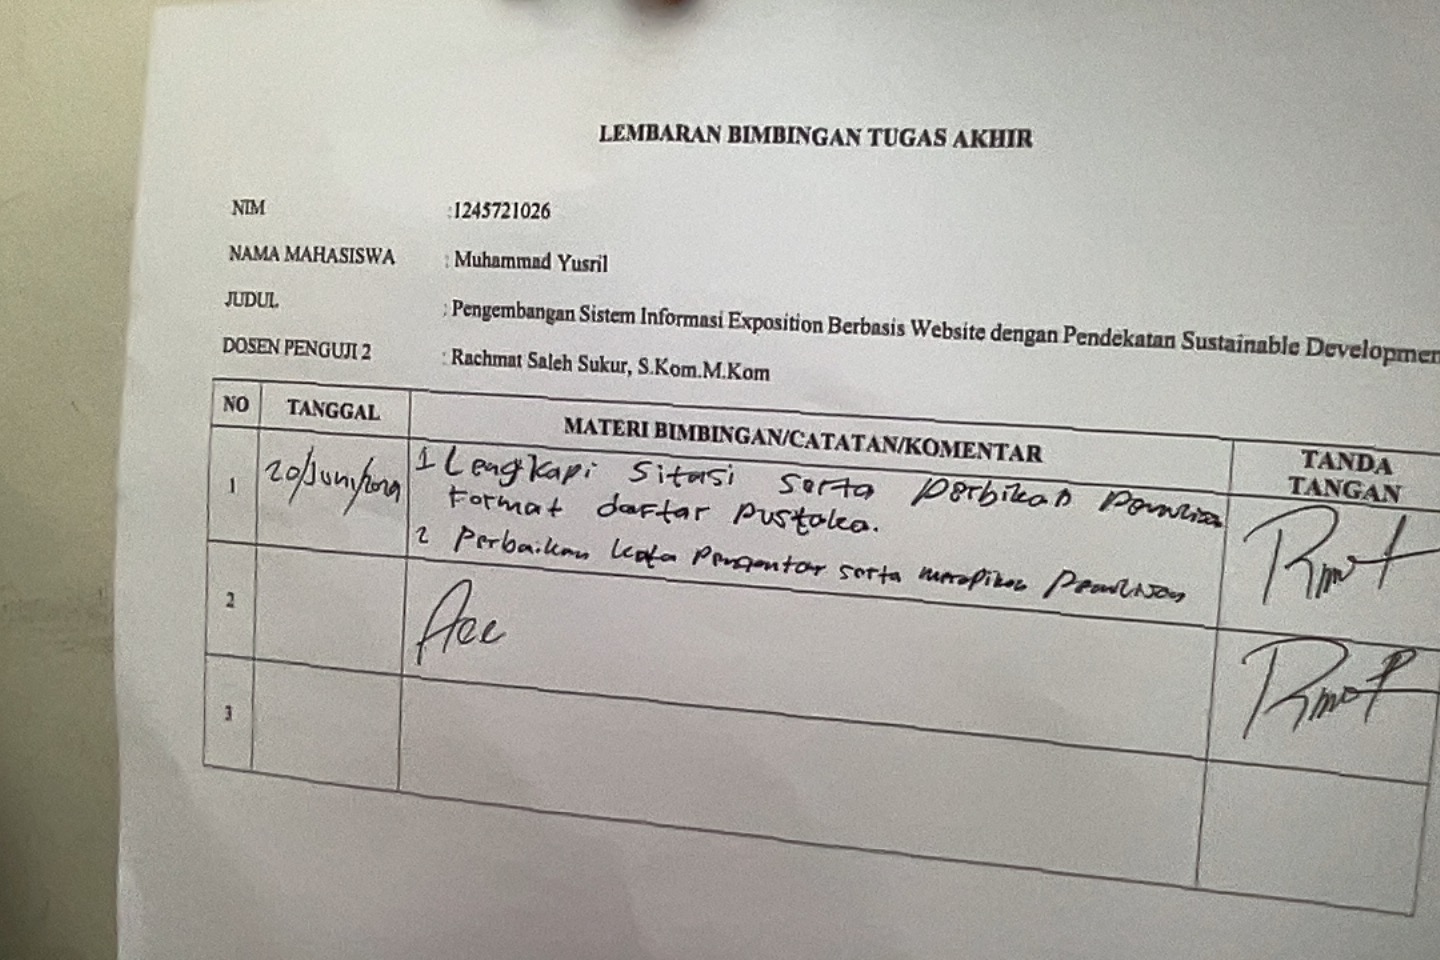 LEMBARAN BIMBINGAN TUGAS AKHIR
NIM :1245721026
NAMA MAHASISWA : Muhammad Yusril
JUDUL : Pengembangan Sistem Informasi Exposition Berbasis Website dengan Pendekatan Sustainable Developmen
DOSEN PENGUJI 2 : Rachmat Saleh Sukur, S.Kom.M.Kom
NO TANGGAL MATERI BIMBINGAN/CATATAN/KOMENTAR TANDA TANGAN
1 20/Juni/ 1 Lengkapi Sitasi serta perbikan
Format daftar pustaka.
2 Perbaikan kata pengantar serta merapikan penulisan
2 Acc
3